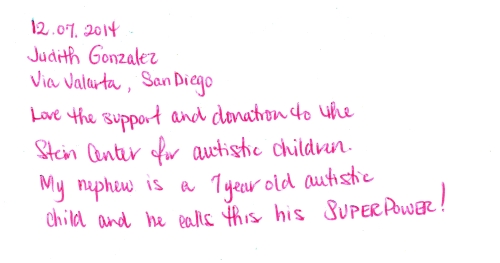 12.07.2014
Judith Gonzalez
Via Valarta, San Diego
Love the support and donation to the
Stein Center for autistic children.
My nephew is a 7 year old autistic
child and he calls this his SUPERPOWER!